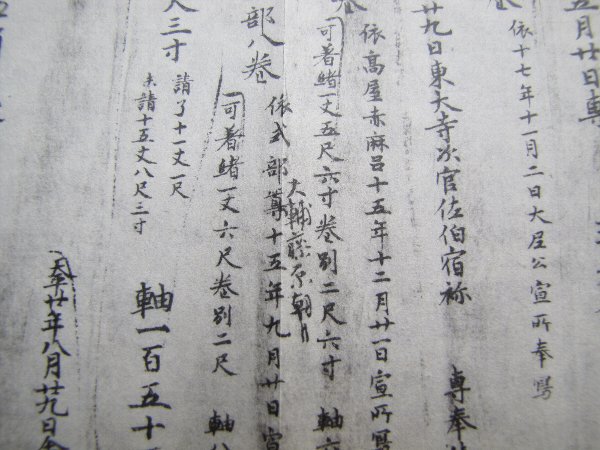 五月廿日専
依十七年十一月二日大尼公宣所奉寫
廿九日東大寺次官佐伯宿祢 専奉
依高屋赤麻呂十五年十二月廿一日宣所寫
可着緒一丈五尺六寸 卷別二尺六寸 軸六
大輔藤原朝
依式部尊十五年九月廿日宣
部八卷 可着緒一丈六尺 卷別二尺 軸八
三寸 請了十一丈一尺
未請十五丈八尺三寸
軸一百五十
天平廿年八月廿九日